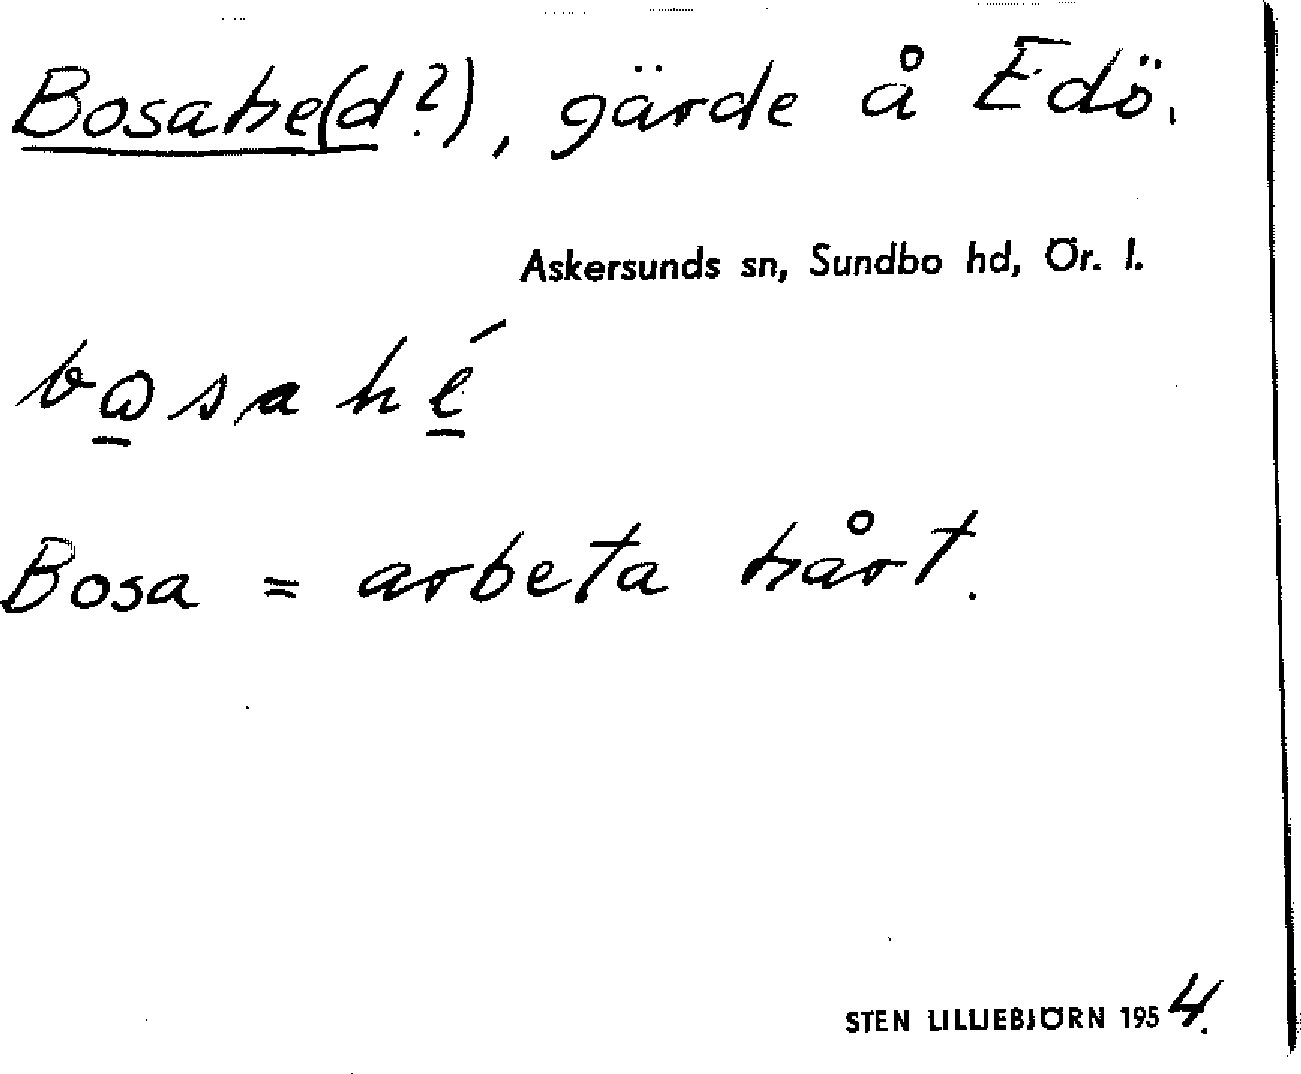 Bosahe(d?), gärde å Edö.
Askersunds sn, Sundbo hd, Ör. l.
bωsahé
Bosa = arbeta hårt.
STEN LILLIEBJÖRN 1954.